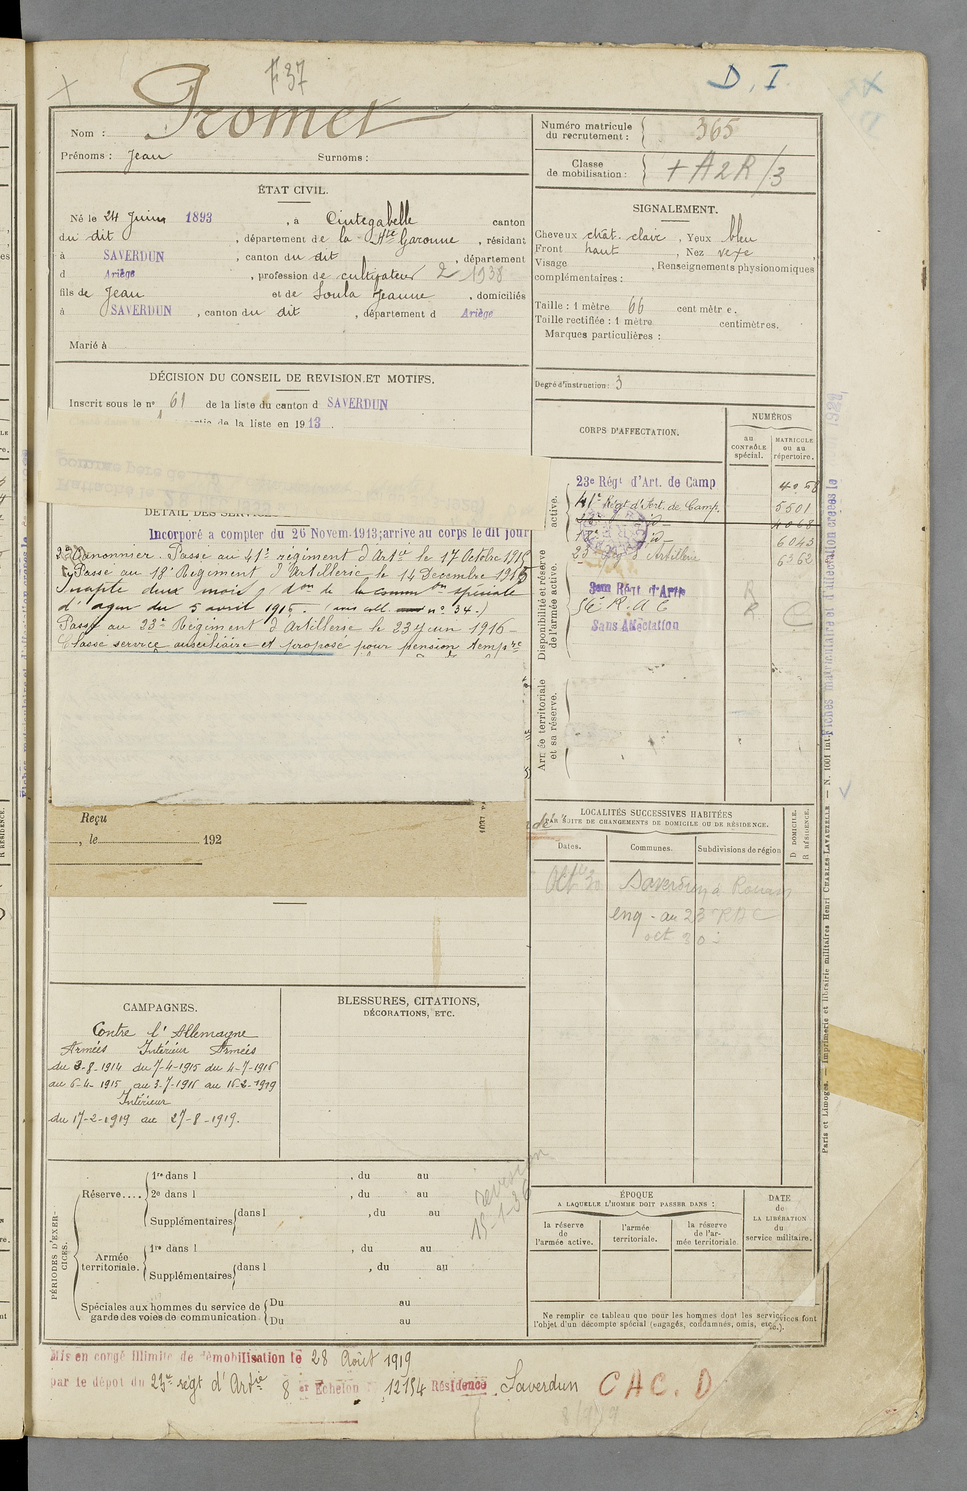 F37
D. I.
Nom : Fromet
Prénoms : Jean Surnoms :
Numéro matricule du recrutement : 365
Classe de mobilisation : + A2R/3
ÉTAT CIVIL.
Né le 24 Juin 1893, à Cintegabelle canton
du dit, département de la Hte Garonne, résidant
à SAVERDUN, canton du dit, département
d Ariège, profession de cultivateur 2 1938
fils de Jean et de Soula Jeanne, domiciliés
à SAVERDUN, canton du dit, département d Ariège
Marié à
SIGNALEMENT.
Cheveux chât. clair, Yeux bleu
Front haut, Nez vexe
Visage , Renseignements physionomiques
complémentaires :
Taille : 1 mètre 66 centimètre.
Taille rectifiée : 1 mètre centimètres.
Marques particulières :
Degré d'instruction : 3
DÉCISION DU CONSEIL DE REVISION ET MOTIFS.
Inscrit sous le no 61 de la liste du canton d SAVERDUN
de la liste en 1913.
DÉTAIL DES
Incorporé à compter du 26 Novem. 1913; arrive au corps le dit jour
2e Canonnier. Passé au 41e régiment d'Artie le 17 Octobre 1915
Passé au 18e Régiment d'Artillerie le 14 Decembre 1915
Inapte deux mois don de la comm on spéciale
d'agen du 5 avril 1916. (avis coll n° 34.)
Passé au 23e Régiment d'Artillerie le 23 Juin 1916 -
Classé service auxiliaire et proposé pour pension tempre
Reçu
, le 192
CORPS D'AFFECTATION.
NUMÉROS
au contrôle spécial.
MATRICULE ou au répertoire.
Disponibilité et réserve de l'armée active.
active.
23e Régt d'Art. de Camp 4058
41e Régt d'Art. de Camp. 5501
4068
18e id- 6043
23 d'Artillerie 6362
3em Régt d'Artie
R.A.C
Sans Affectation
R
R
C
Armée territoriale et sa réserve.
LOCALITÉS SUCCESSIVES HABITÉES
PAR SUITE DE CHANGEMENTS DE DOMICILE OU DE RÉSIDENCE.
Dates. Communes. Subdivisions de région
D DOMICILE.
R RÉSIDENCE.
Oct 30 Saverdun
enq - au 23 RAC
oct 30
CAMPAGNES.
Contre l'Allemagne
Armées Intérieur Armées
du 3-8-1914 du 7-4-1915 du 4-7-1916
au 6-4-1915 au 3-7-1916 au 16-2-1919
Intérieur
du 17-2-1919 au 27-8-1919.
BLESSURES, CITATIONS,
DÉCORATIONS, ETC.
PÉRIODES D'EXERCICES.
Réserve....
1re dans l , du au
2e dans l , du au
Supplémentaires dans l , du au
Armée territoriale.
1re dans l , du au
Supplémentaires dans l , du au
Spéciales aux hommes du service de garde des voies de communication.
Du au
Du au
revision
15-1-36
ÉPOQUE
A LAQUELLE L'HOMME DOIT PASSER DANS :
la réserve de l'armée active.
l'armée territoriale.
la réserve de l'armée territoriale
DATE de LA LIBÉRATION du service militaire.
Ne remplir ce tableau que pour les hommes dont les services font
l'objet d'un décompte spécial (engagés, condamnés, omis, etc.).
Mis en congé illimité de démobilisation le 28 Août 1919
par le dépôt du 23e régt d'Artie 8 Echelon 12154 Résidence Saverdun CAC. D
Paris et Limoges. — Imprimerie et librairie militaires Henri CHARLES-LAVAUZELLE — N. 1001 int.
Fiches matriculaire et d'affectation créées le